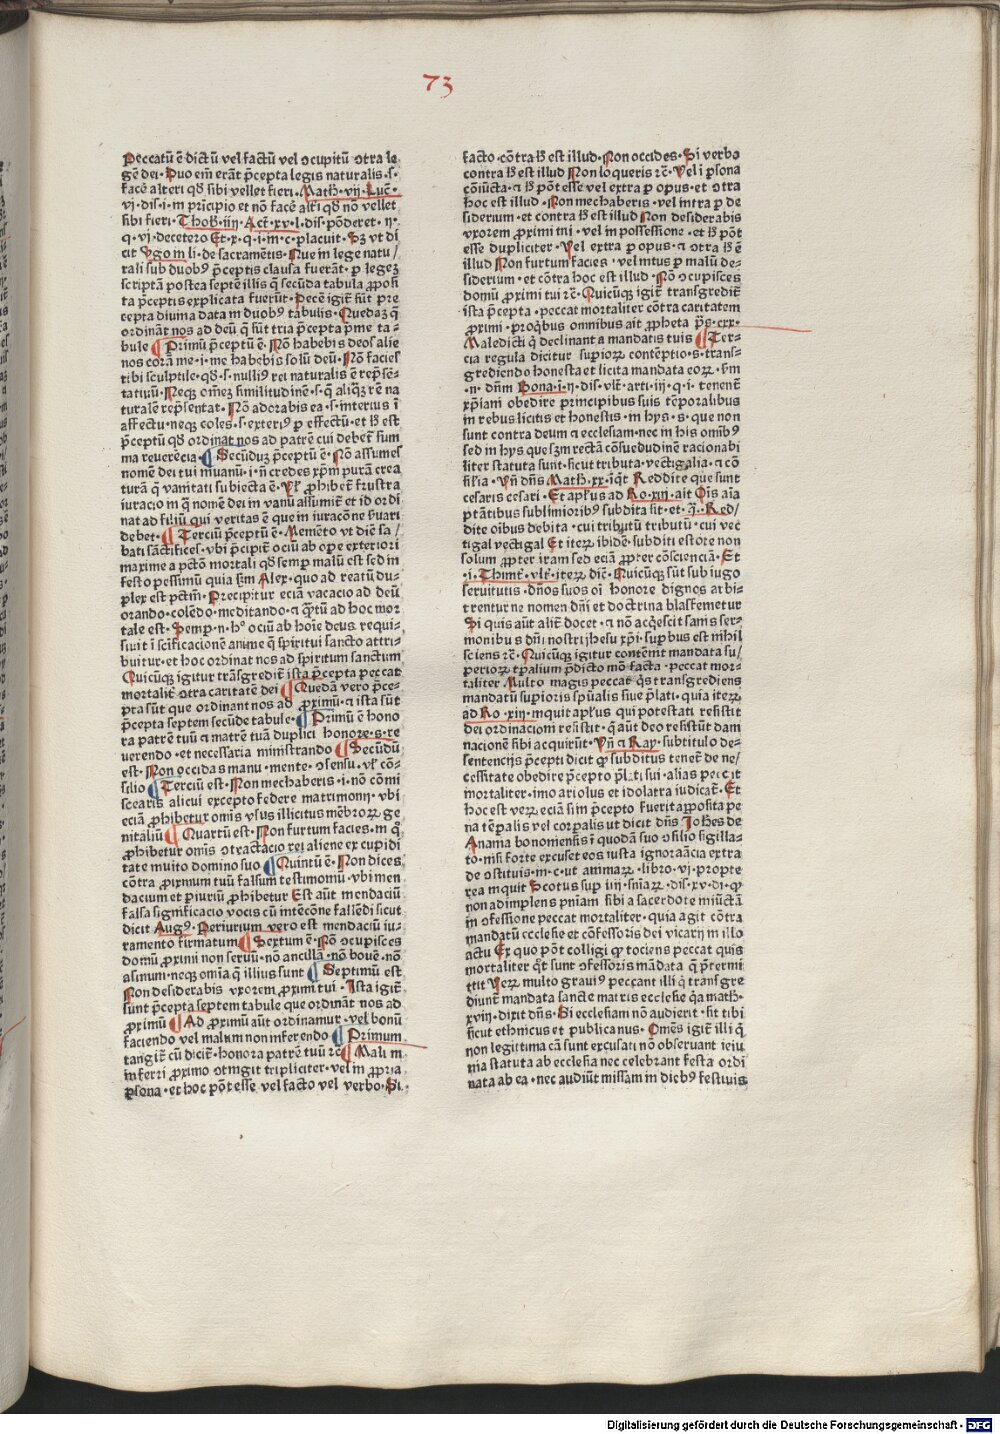 73
Peccatū ē dictū vel factū vel ↄcupitū ↄtra le
gē dei · Duo em̄ erāt p̄cepta legis naturalis · s ·
facē alteri qd̄ sibi vellet fieri · Math · vij · Luc̄ ·
vj · dis · i · in prīcipio et nō facē alt̓i qd̄ nō vellet
sibi fieri · Thob̄ · iiij · Act̄ · xv · l · dis · pōderet · ij ·
q · vj · decetero Et · x · q · i · m · c · placuit · Sꝫ vt di
cit Ygo in li · de sacramētis · Nue in lege natu/
rali sub duobꝰ p̄ceptis clausa fuerāt · ꝑ legeꝫ
scriptā postea septē illis q̄ secūda tabula ꝓposi
ta p̄ceptis explicata fuerūt · Decē igit̄ sūt pre
cepta diuina data in duobꝰ tabulis · Quedaꝫ q̄
ordināt nos ad deū q̄ sūt tria p̄cepta p̄me ta-
bule ¶ Primū p̄ceptū ē · Nō habebis deos alie
nos corā me · i · me habebis solū deū · Nō facies
tibi sculptile · qd̄ · s · nulliꝰ rei naturalis ē rep̄sē-
tatiuū · Neqꝫ omeꝫ similitudinē · s · q̄ aliqꝫ rē na
turalē rep̄sentat · Nō adorabis ea · s · interius ī
affectu · neqꝫ coles · s · exteriꝰ ꝑ effectū · et hͦ est
p̄ceptū qd̄ ordinat nos ad patrē cui debet̄ sum
ma reuerēcia ¶ Secūduꝫ p̄ceptū ē · Nō assumes
nomē dei tui inuanū · i · n̄ credes xp̄m purā crea
turā q̄ vanitati subiecta ē · Vl̓ ꝓhibet̄ frustra
iuracio in q̄ nomē dei in vanū assumit̄ et id ordi
nat ad filiū qui veritas ē que in iuracōne s̓uari
debet · ¶ Terciū p̄ceptū ē · Memēto vt diē sa/
bati sāctifices · vbi p̄cipit̄ ociū ab oꝑe exteriori
maxime a pctō mortali qd̄ semꝑ malū est sed in
festo pessimū quia sm̄ Alex · quo ad reatū du-
plex est pctm̄ · Precipitur eciā vacacio ad deū
orando · colēdo · meditando · ⁊ q̄tū ad hoc mor
tale est · Semꝑ · n · hͦ ociū ab hoīe deus requi-
siuit ī scificacionē anime q̄ spiritui sancto attri-
buitur · et hoc ordinat nos ad spiritum sanctum
Quicūqꝫ igitur trāsgredit̄ ista p̄cepta peccat
mortalit̓ ↄtra caritatē dei ¶ Quedā vero p̄ce-
pta sūt que ordinant nos ad ꝓximū · ⁊ ista sūt
p̄cepta septem secūde tabule · ¶ Primū ē hono
ra patrē tuū ⁊ matrē tuā duplici honore · s · re
uerendo · et necessaria ministrando ¶ Secūdū
est · Non occidas manu · mente · ↄsensu · vl̓ cō-
silio ¶ Terciū est · Non mechaberis · i · nō cōmi
scearis alicui excepto federe matrimonij · vbi
eciā ꝓhibetur omīs vsus illicitus mēbroꝝ ge
nitaliū ¶ Quartū est · Non furtum facies · in qͦ
ꝓhibetur omīs ↄtreactacio rei aliene ex cupidi
tate inuito domino suo ¶ Quintū ē · Non dices
cōtra ꝓximum tuū falsum testimoniū · vbi men
dacium et ꝑiuriū ꝓhibetur Est aūt mendaciū
falsa significacio vocis cū intēcōne fallēdi sicut
dicit Augꝰ · Periurium vero est mendaciū iu-
ramento firmatum ¶ Sextum ē · Nō ↄcupisces
domū ꝓximi non seruū · nō ancillā · nō bouē · nō
asinum · neqꝫ omīa q̄ illius sunt ¶ Septimū est
Non desiderabis vxorem ꝓximi tui · Ista igit̄
sunt p̄cepta septem tabule que ordināt nos ad
ꝓximū ¶ Ad ꝓximū aūt ordinamur · vel bonū
faciendo vel malum non inferendo ¶ Primum
tangit̄ cū dicit̄ · honora patrē tuū rc̄ ¶ Mali in
inferri ꝓximo ↄtingit tripliciter · vel in ꝓpria
ꝑsona · et hoc pōt esse vel facto vel verbo · Si
facto · cōtra hͦ est illud · Non occides · Si verbo
contra hͦ est illud Non loqueris rc̄ · Vel ī ꝑsona
cōiūcta · ⁊ hͦ pōt esse vel extra ꝑ opus · et ↄtra
hoc est illud · Non mechaberis · vel intra ꝑ de
siderium · et contra hͦ est illud Non desiderabis
vxorem ꝓximi tui · vel in possessione · et hͦ pōt
esse dupliciter · Vel extra ꝑ opus · ⁊ ↄtra hͦ ē
illud Non furtum facies · vel intus ꝑ malū de-
siderium · et cōtra hoc est illud · Nō ↄcupisces
domū ꝓximi tui rc̄ · Quicūqꝫ igit̄ transgredit̄
ista p̄cepta · peccat mortaliter cōtra caritatem
ꝓximi · pro qͥbus omnibus ait ꝓpheta p̄s · cxx ·
Maledicti q̄ declinant a mandatis tuis ¶ Ter-
cia regula dicitur superioꝝ contēptio · s · trans-
grediendo honesta et licita mandata eoꝝ · s̓m
· n · dn̄m Bona · i · ij · dis · vlt̄ · arti · iij · q · i · tenent̄
xp̄iani obedire principibus suis tēporalibus
in rebus licitis et honestis · in hijs · s · que non
sunt contra deum ⁊ ecclesiam · nec in his omībꝰ
sed in hys que sꝫm rectā cōsuedudinē racionabi
liter statuta sunt · sicut tributa · vectigalia · ⁊ cō
silia · Vn̄ dn̄s Math · xx · iqͥt Reddite que sunt
cesaris cesari · Et apl̓us ad Ro · xiij · ait Oīs aīa
ptātibus sublimioribꝰ subdita sit · et · q̄ · Red/
dite oibus debita · cui tributū tributū · cui vec
tigal vectigal Et iteꝝ ibidē · subditi estote non
solum ꝓpter iram sed eciā ꝓpter cōscienciā · Et
· i · Thimt̄ · vlt̄ · iteꝝ dic̄ · Quicūqꝫ sūt sub iugo
seruitutis · dn̄os suos oī honore dignos arbi-
trentur ne nomen dn̄i et doctrina blasfemetur
Si quis aūt alit̓ docet · ⁊ nō acqͥescit sanis ser-
monibus dn̄i nostri jhesu xp̄i · suꝑbus est nihil
sciens rc̄ · Quicūqꝫ igitur contēnit mandata su/
perioꝝ tp̄alium p̄dicto mō facta · peccat mor-
taliter Multo magis peccat q̄s transgrediens
mandatū suꝑioris spūalis siue p̄lati · quia iteꝝ
ad Ro · xiij · inquit apl̓us qui potestati resistit
dei ordinacioni resistit · q̄ aūt deo resistūt dam
nacionē sibi acquirūt · Vn̄ ⁊ Ray · sub titulo de-
sentencijs p̄cepti dicit ꝙ subditus tenet̄ de ne/
cessitate obedire p̄cepto p̄lati sui · alias peccat
mortaliter · imo ariolus et idolatra iudicat̄ · Et
hoc est veꝝ eciā si in p̄cepto fuerit apposita pe
na tēꝑalis vel corꝑalis ut dicit dn̄s Johēs de
Anania bononiensis ī quodā suo ↄsilio sigilla-
to · nisi forte excuset eos iusta ignorancia extra
de ↄstituis · in · c · ut animaꝝ · libro · vj · propte
rea inquit Scotus sup iiij · sniaꝝ · dis · xv · di · ꝙ
non adimplens pniam sibi a sacerdote iniūctā
in ↄfessione peccat mortaliter · quia agit cōtra
mandatū ecclesie et cōfessoris dei vicarij in illo
actu Ex quo pōt colligi ꝙ tociens peccat quis
mortaliter qͦt sunt ↄfessoris mādata q̄ p̄termi
ttit Veꝝ multo grauiꝰ peccant illi q̄ transgre
diunt̄ mandata sancte matris ecclesie qͣ math ·
xviij · dixit dn̄s · Si ecclesiam nō audierit · sit tibi
sicut ethnicus et publicanus · Omēs igit̄ illi q̄
non legittima cā sunt excusati nō obseruant ieiu
nia statuta ab ecclesia nec celebrant festa ordi
nata ab ea · nec audiūt missam in diebꝰ festiuis
Digitalisierung gefördert durch die Deutsche Forschungsgemeinschaft · DFG